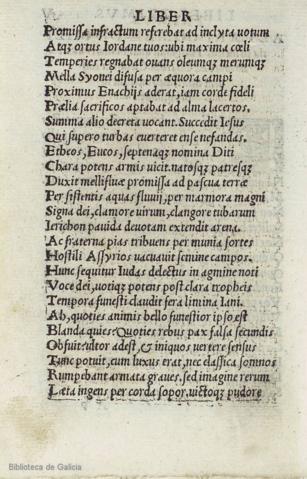 LIBER
Promissa infractum referebat ad inclyta uotum
Atq; ortus Iordane tuos: ubi maxima cœli
Temperies regnabat ouans oleumq; merumq;
Mella Syonei difusa per æquora campi
Proximus Enachijs aderat, iam corde fideli
Prælia sacrificos aptabat ad alma lacertos.
Summa alio decreta uocant. Succedit Iesus
Qui supero turbas euerteret ense nefandas.
Etheos, Eucos, septenaq; nomina Diti
Chara potens armis uicit. natosq; patresq;
Duxit mellifluæ promissa ad pascua terræ
Per sistentis aquas fluuij, per marmora magni
Signa dei, clamore uirum, clangore tubarum
Ierichon pauida deuotam extendit arena.
Ac fraterna pias tribuens per munia sortes
Hostili Assyrios uacuauit semine campos.
Hunc sequitur Iudas delectus in agmine noti
Voce dei, uotiq; potens post clara tropheis
Tempora funesti claudit fera limina Iani.
Ah, quoties animis bello funestior ipso est
Blanda quies? Quoties rebus pax falsa secundis
Obfuit? ultor adest, & iniquos uertere sensus
Tunc potuit, cum luxus erat, nec classica somnos
Rumpebant armata graues. sed imagine rerum
Læta ingens per corda sopor, uictoq; pudore
Biblioteca de Galicia